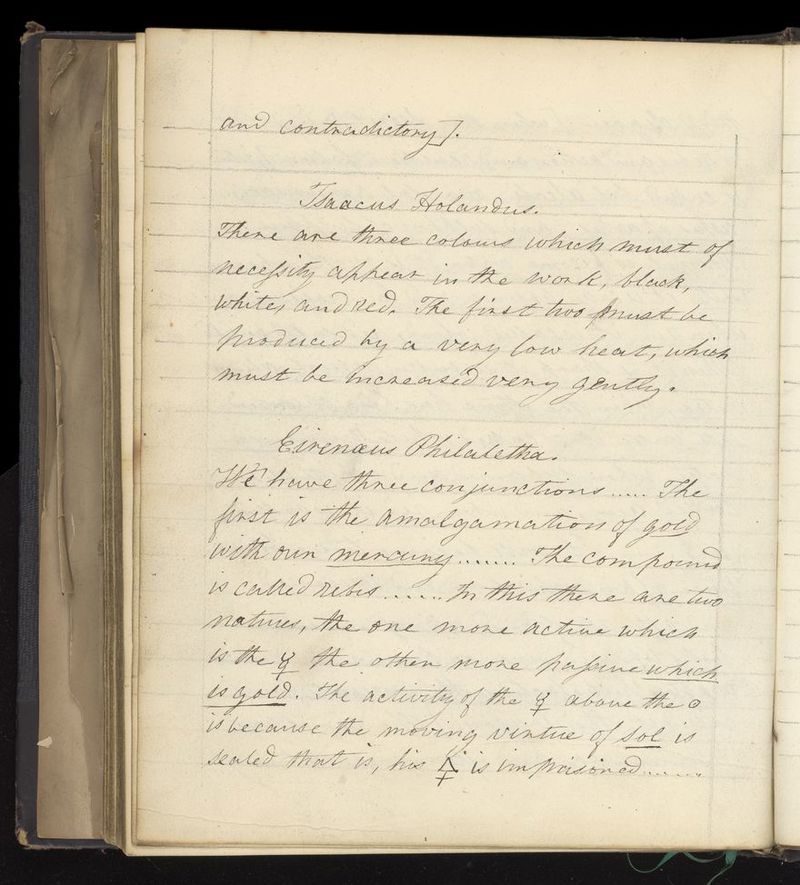 and contradictory].
Isaacus Holandus.
There are three colours which must of
necessity appear in the work, black,
white, and red. The first two must be
produced by a very low heat, which
must be increased very gently.
Eirenæus Philaletha.
We have three conjunctions ..... The
first is the amalgamation of gold
with our mercury ....... The compound
is called rebis ....... In this there are two
natures, the one more active which
is the ☿ the other more passive which
is gold. The activity of the ☿ above the ☉
is because the moving virtue of sol is
sealed that is, his 🜍 is imprisoned .......